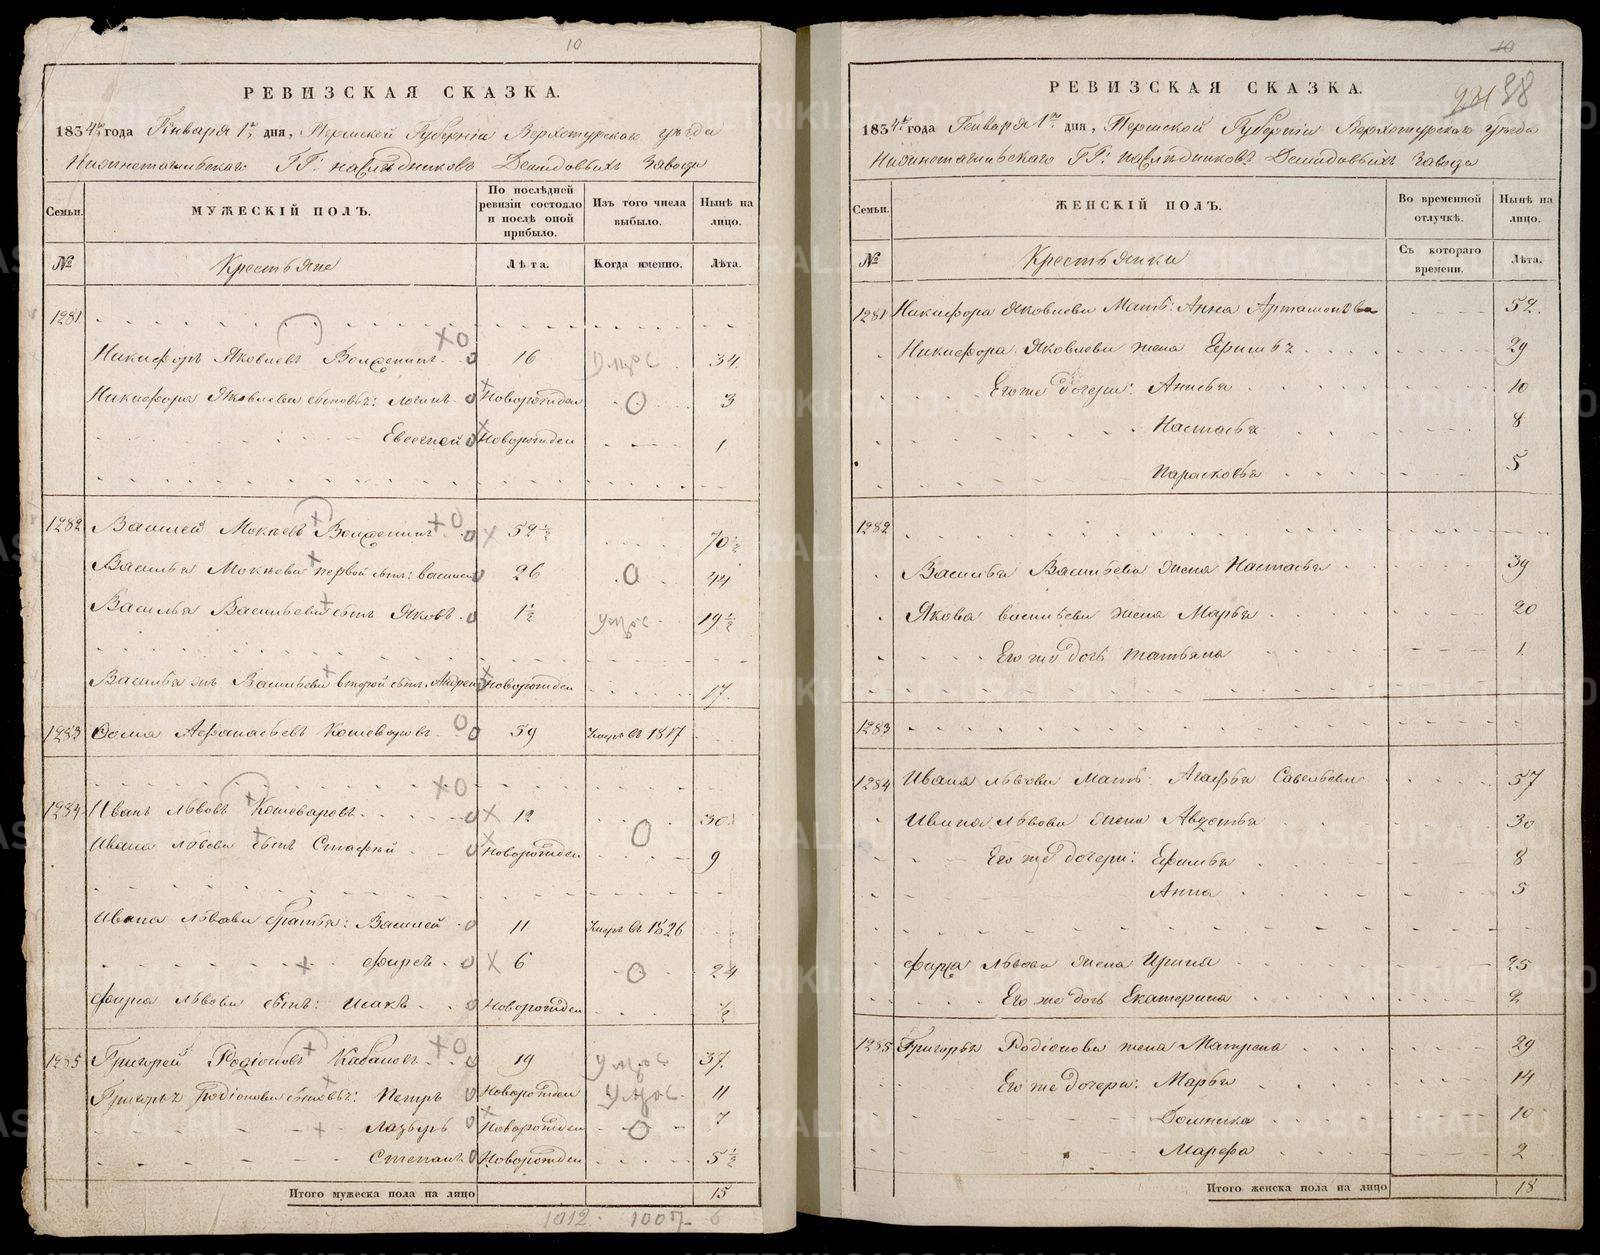 10
РЕВИЗСКАЯ СКАЗКА.
1834го года Генваря 1го дня, Пермской Губерніи Верхотурскаго уѣзда
Нижнетагильскаго ГГ: наслѣдниковъ Демидовыхъ Завода
Семьи. МУЖЕСКІЙ ПОЛЪ. По послѣдней ревизіи состояло и послѣ оной прибыло. Изъ того числа выбыло. Нынѣ на лицо.
№ Крестьяне Лѣта. Когда именно. Лѣта.
1281
Никифоръ Яковлевъ 16 34.
Никифора Яковлева сыновья: Логинъ Новорожден 3
Евсегней Новорожден 1
1282 Василей Мокѣевъ 52 ½ 70 ½
Василья Мокѣева первой сынъ: Василей 26 44
Василья Васильева сынъ Яковъ 1 ½ 19 ½
Василья Васильева второй сынъ: Андрей Новорожден 17.
1283 Фома Афонасьевъ Кошеваровъ 59 Умръ въ 1817
1284 Иванъ Львовъ Кошеваровъ 12 30
Ивана Львова сынъ Стафѣй Новорожден 9
Ивана Львова братья: Василей 11 Умръ въ 1826
Фирсъ 6 24
Фирса Львова сынъ: Исакъ Новорожден ½
1285 Григорей Родіоновъ Кабановъ 19 37.
Григорья Родіонова сыновья: Петръ Новорожден 11
Лазарь Новорожден 7
Степанъ Новорожден 5 ½
Итого мужеска пола на лицо 15
1012. 1007 6
10
38
РЕВИЗСКАЯ СКАЗКА.
1834го года Генваря 1го дня, Пермской Губерніи Верхотурскаго уѣзда
Нижнетагильскаго ГГ: наслѣдниковъ Демидовыхъ Завода
Семьи. ЖЕНСКІЙ ПОЛЪ. Во временной отлучкѣ. Нынѣ на лицо.
№ Крестьянки Съ котораго времени. Лѣта.
1281 Никифора Яковлева Мать: Анна Артамонова 52.
Никифора Яковлева жена 29
Его же дочери: Анисья 10
Настасья 8
Парасковья 5
1282
Василья Васильева жена Настасья 39
Якова Васильева жена Марья 20
Его же дочь Татьяна 1.
1283
1284 Ивана Львова Мать Агафья Савельева 57
Ивана Львова жена Авдотья 30
Его же дочери: Ефимья 8
Анна 5
Фирса Львова жена Ирина 25
Его же дочь Екатерина 2
1285 Григорья Родіонова жена Матрена 29
Его же дочери: Марья 14
Домника 10
Марфа 2
Итого женска пола на лицо 18
METRIKI.GASO-URAL.RU